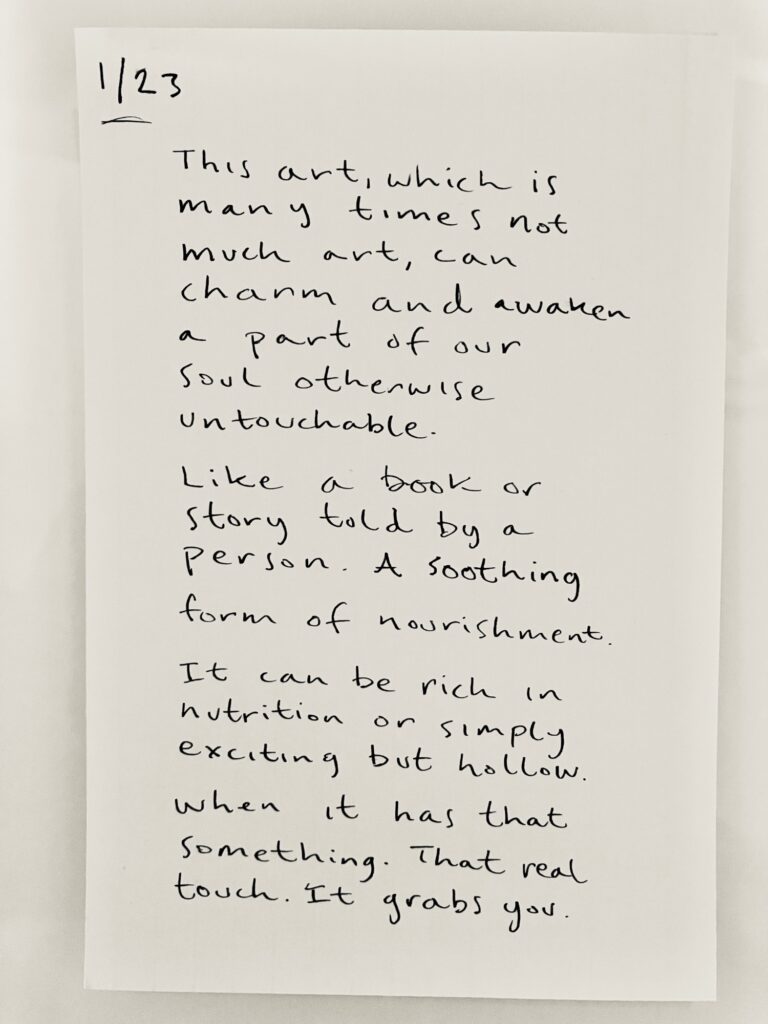 1/23
This art, which is
many times not
much art, can
charm and awaken
a part of our
soul otherwise
untouchable.
Like a book or
story told by a
person. A soothing
form of nourishment.
It can be rich in
nutrition or simply
exciting but hollow.
when it has that
something. That real
touch. It grabs you.